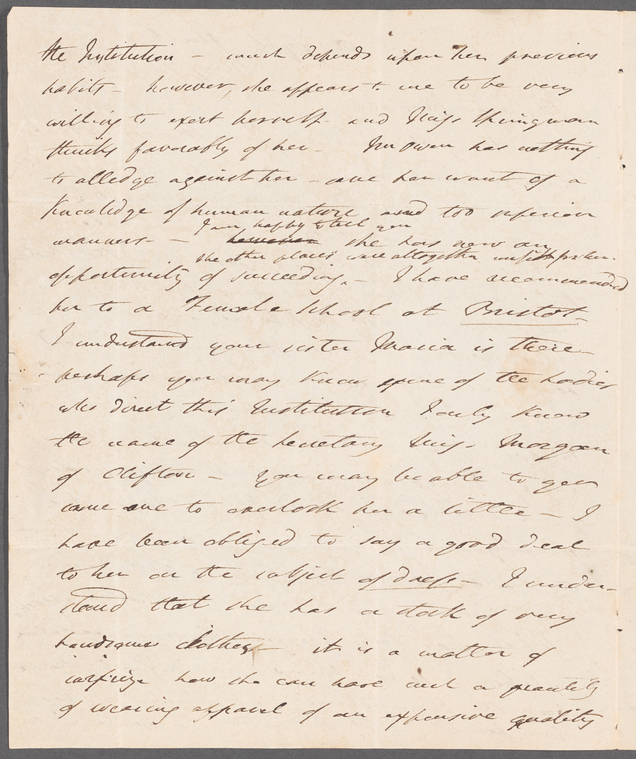 the Institution – much depends upon her previous
habits – however, she appears to me to be very
willing to exert herself – and Miss Springman
thinks favorably of her – Mr Owen has nothing
to alledge against her – one her want of a
knowledge of human nature and too superior
I am happy to tell you
manners – – however she has now an
the other places were altogether
opportunity of succeeding – I have recommended
her to a Female School at Bristol –
I understand your sister Maria is there –
perhaps you may know some of the Ladies
who direct this Institution I only know
the name of the Secretary Miss Morgan
of Clifton – you may be able to get
some one to overlook her a little – I
have been obliged to say a good deal
to her on the subject of dress – I under-
stand that she has a stock of very
handsome clothes – it is a matter of
surprize how she can have such a quantity
of wearing apparel of an expensive quality